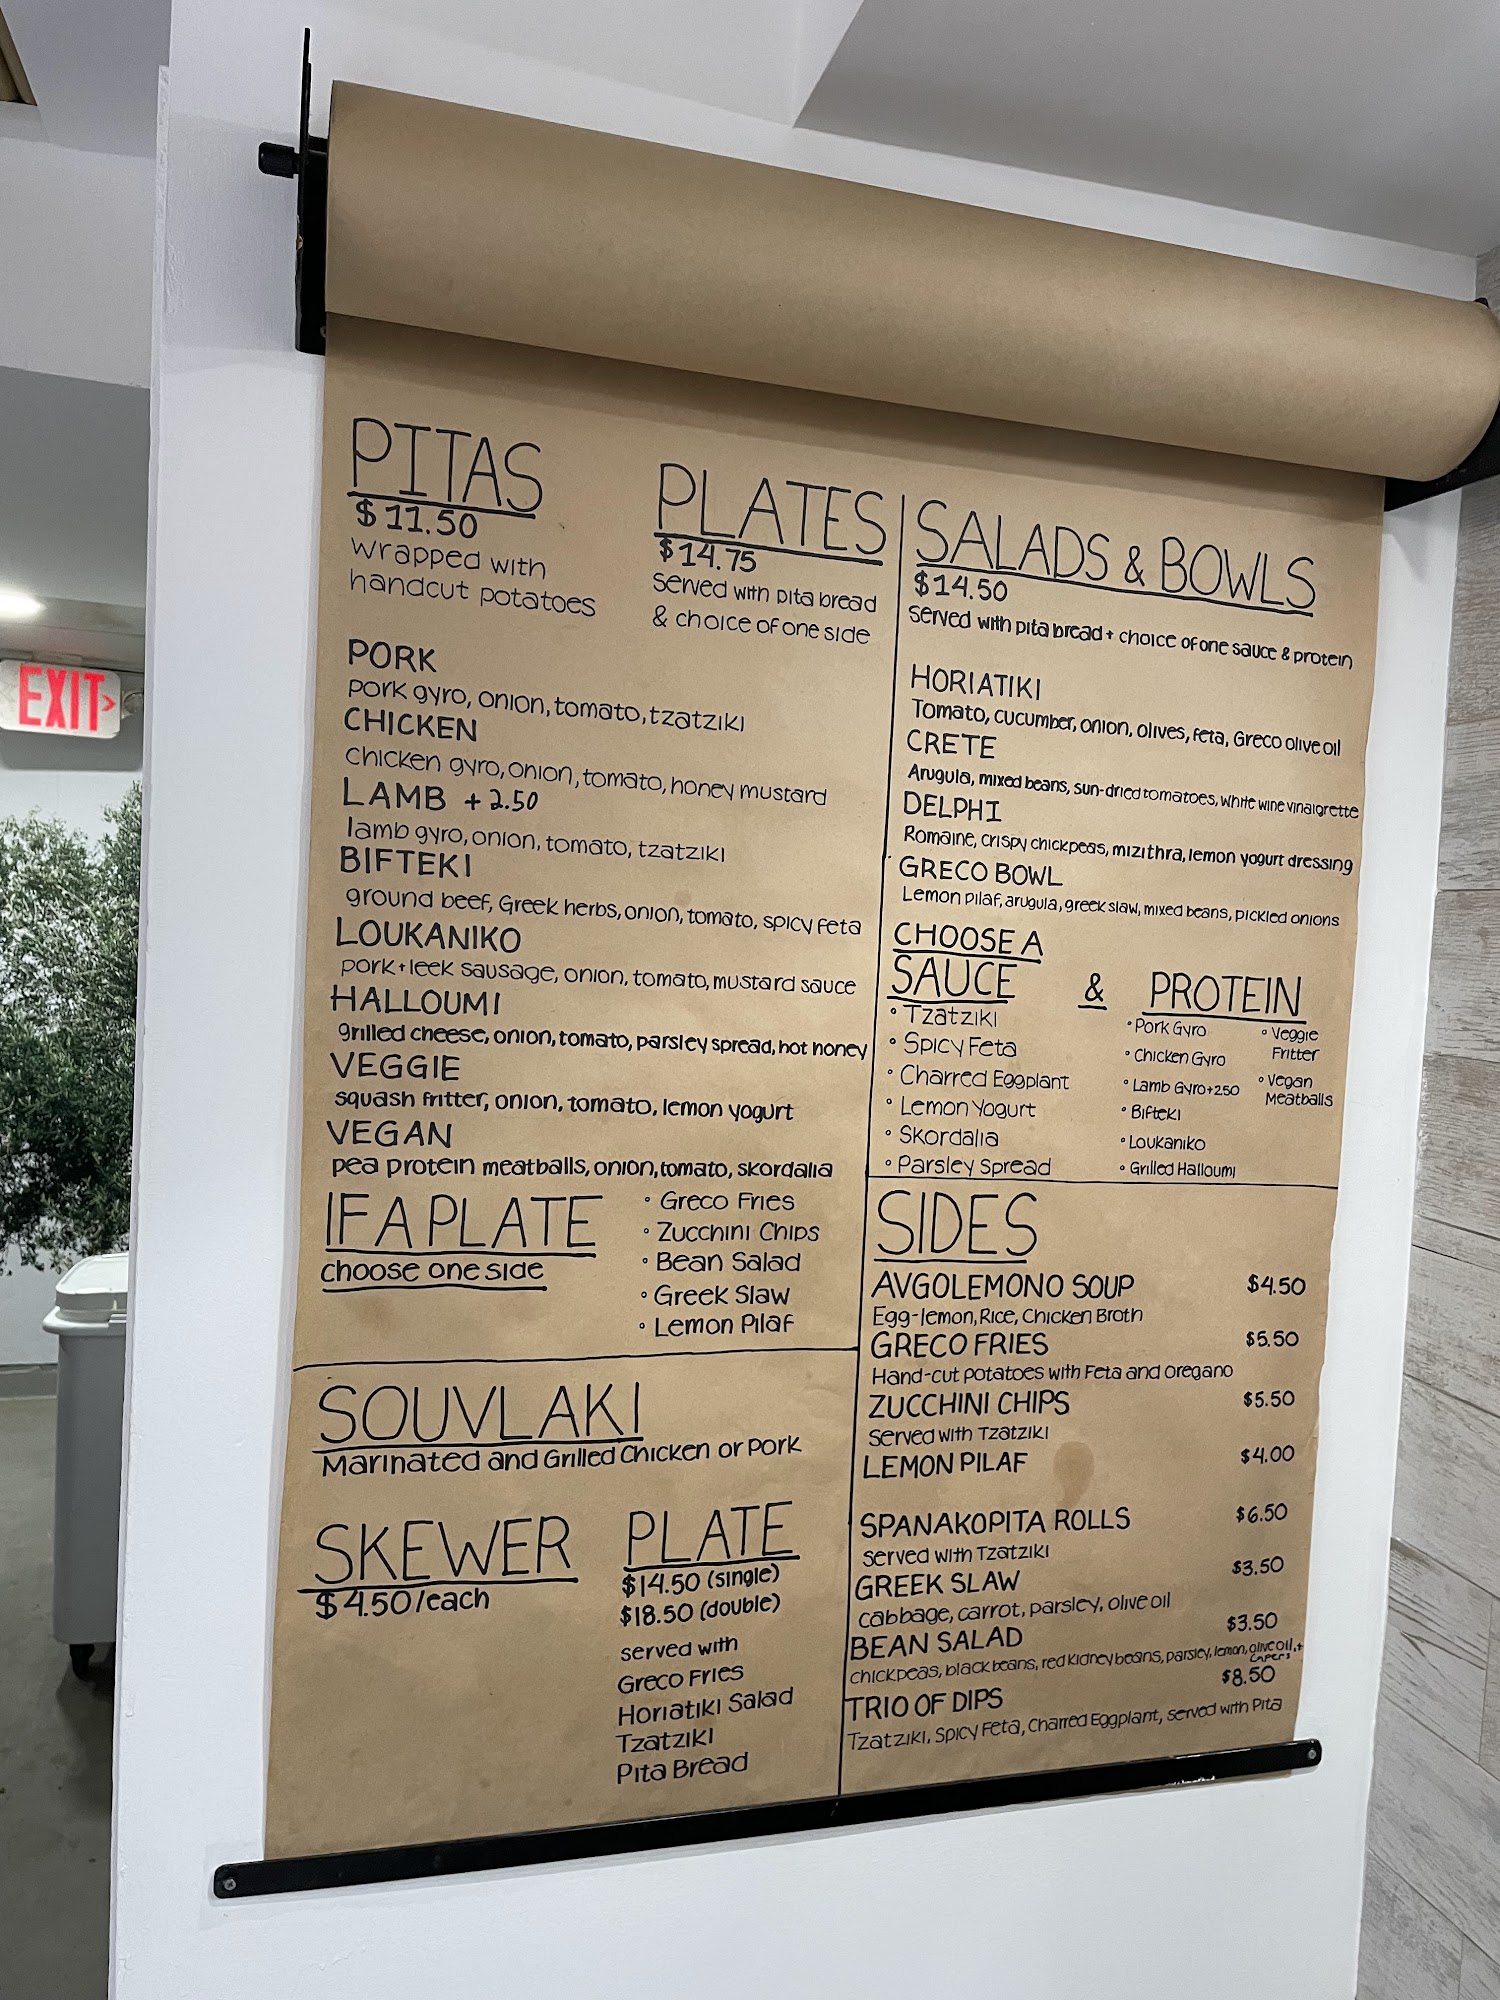 EXIT>
PITAS
$11.50
wrapped with
handcut potatoes
PLATES
$14.75
served with pita bread
& choice of one side
PORK
pork gyro, onion, tomato, tzatziki
CHICKEN
Chicken gyro, onion, tomato, honey mustard
LAMB +2.50
lamb gyro, onion, tomato, tzatziki
BIFTEKI
ground beef, Greek herbs, onion, tomato, spicy feta
LOUKANIKO
pork+leek sausage, onion, tomato, mustard sauce
HALLOUMI
grilled cheese, onion, tomato, parsley spread, hot honey
VEGGIE
squash fritter, onion, tomato, lemon yogurt
VEGAN
pea protein meatballs, onion, tomato, skordalia
IF A PLATE
choose one side
• Greco Fries
• Zucchini Chips
• Bean Salad
• Greek Slaw
• Lemon Pilaf
SOUVLAKI
Marinated and Grilled Chicken or Pork
SKEWER
$4.50/each
PLATE
$14.50 (single)
$18.50 (double)
served with
Greco Fries
Horiatiki Salad
Tzatziki
Pita Bread
SALADS & BOWLS
$14.50
served with pita bread + choice of one sauce & protein
HORIATIKI
Tomato, cucumber, onion, olives, feta, Greco olive oil
CRETE
Arugula, mixed beans, sun-dried tomatoes, white wine vinaigrette
DELPHI
Romaine, crispy chickpeas, mizithra, lemon yogurt dressing
GRECO BOWL
Lemon pilaf, arugula, greek slaw, mixed beans, pickled onions
CHOOSE A
SAUCE & PROTEIN
• Tzatziki
• Spicy Feta
• Charred Eggplant
• Lemon Yogurt
• Skordalia
• Parsley Spread
• Pork Gyro
• Chicken Gyro
• Lamb Gyro+2.50
• Bifteki
• Loukaniko
• Grilled Halloumi
• Veggie
Fritter
• Vegan
Meatballs
SIDES
AVGOLEMONO SOUP $4.50
Egg-lemon, Rice, Chicken Broth
GRECO FRIES $5.50
Hand-cut potatoes with Feta and oregano
ZUCCHINI CHIPS $5.50
served with Tzatziki
LEMON PILAF $4.00
SPANAKOPITA ROLLS $6.50
served with Tzatziki
GREEK SLAW $3.50
cabbage, carrot, parsley, olive oil
BEAN SALAD $3.50
chickpeas, black beans, red kidney beans, parsley, lemon, olive oil, +
capers
TRIO OF DIPS $8.50
Tzatziki, Spicy Feta, Charred Eggplant, served with Pita